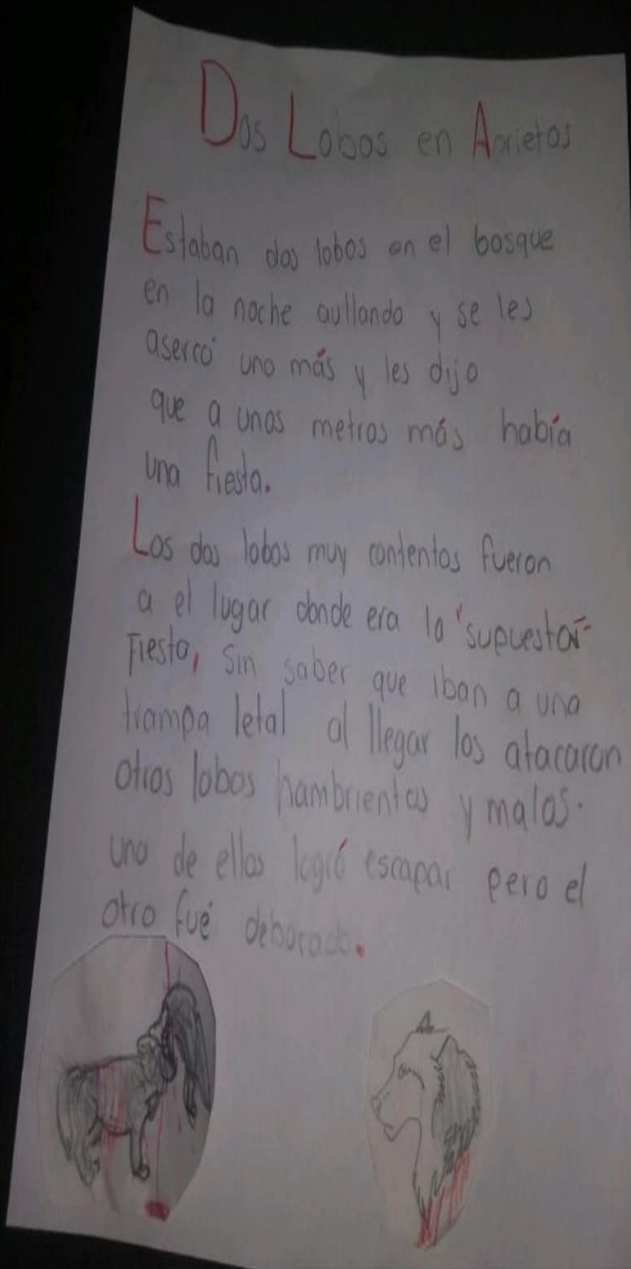 Dos Lobos en Aprietos
Estaban dos lobos en el bosque
en la noche aullando y se les
asercó uno más y les dijo
que a unos metros más había
una fiesta.
Los dos lobos muy contentos fueron
a el lugar donde era la "supuesta"
Fiesta, sin saber que iban a una
trampa letal al llegar los atacaron
otros lobos hambrientos y malos.
uno de ellos logró escapar pero el
otro fué deborado.